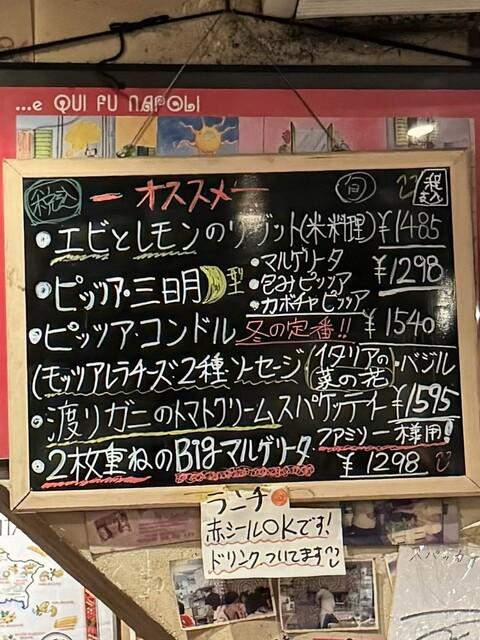 ...e QUI FU NAPOLI
税込 ーオススメー 旬 税込
・エビとレモンのリゾット(米料理) ¥1485
・ピッツァ・三日月型 ・マルゲリータ ・包みピッツァ ・カボチャピッツァ ¥1298
・ピッツア・コンドル 冬の定番!! ¥1540
(モッツアレラチーズ・2種・ソーセージ(イタリアの菜の花)・バジル
・渡りガニのトマトクリームスパゲッティー ¥1595
・2枚重ねのBigマルゲリータ ファミリー様用
¥1298
ランチ
赤シールOKです!
ドリンクついてます